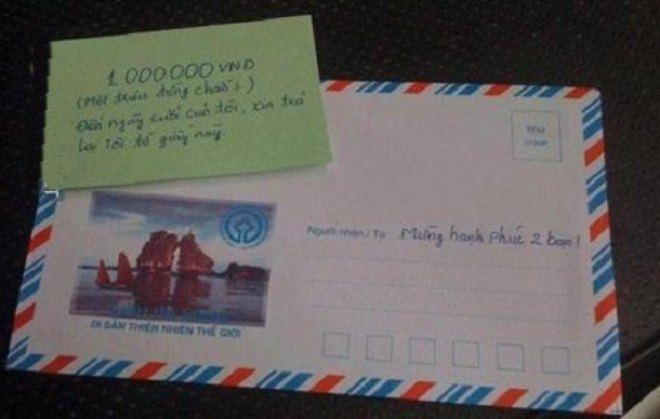 1.000.000 VNĐ
(Một triệu đồng chẵn!)
Đến ngày cưới của tôi, xin trả
lại tôi tờ giấy này.
TEM
STAMP
Người nhận / To Mừng hạnh phúc 2 bạn!
DI SẢN THIÊN NHIÊN THẾ GIỚI